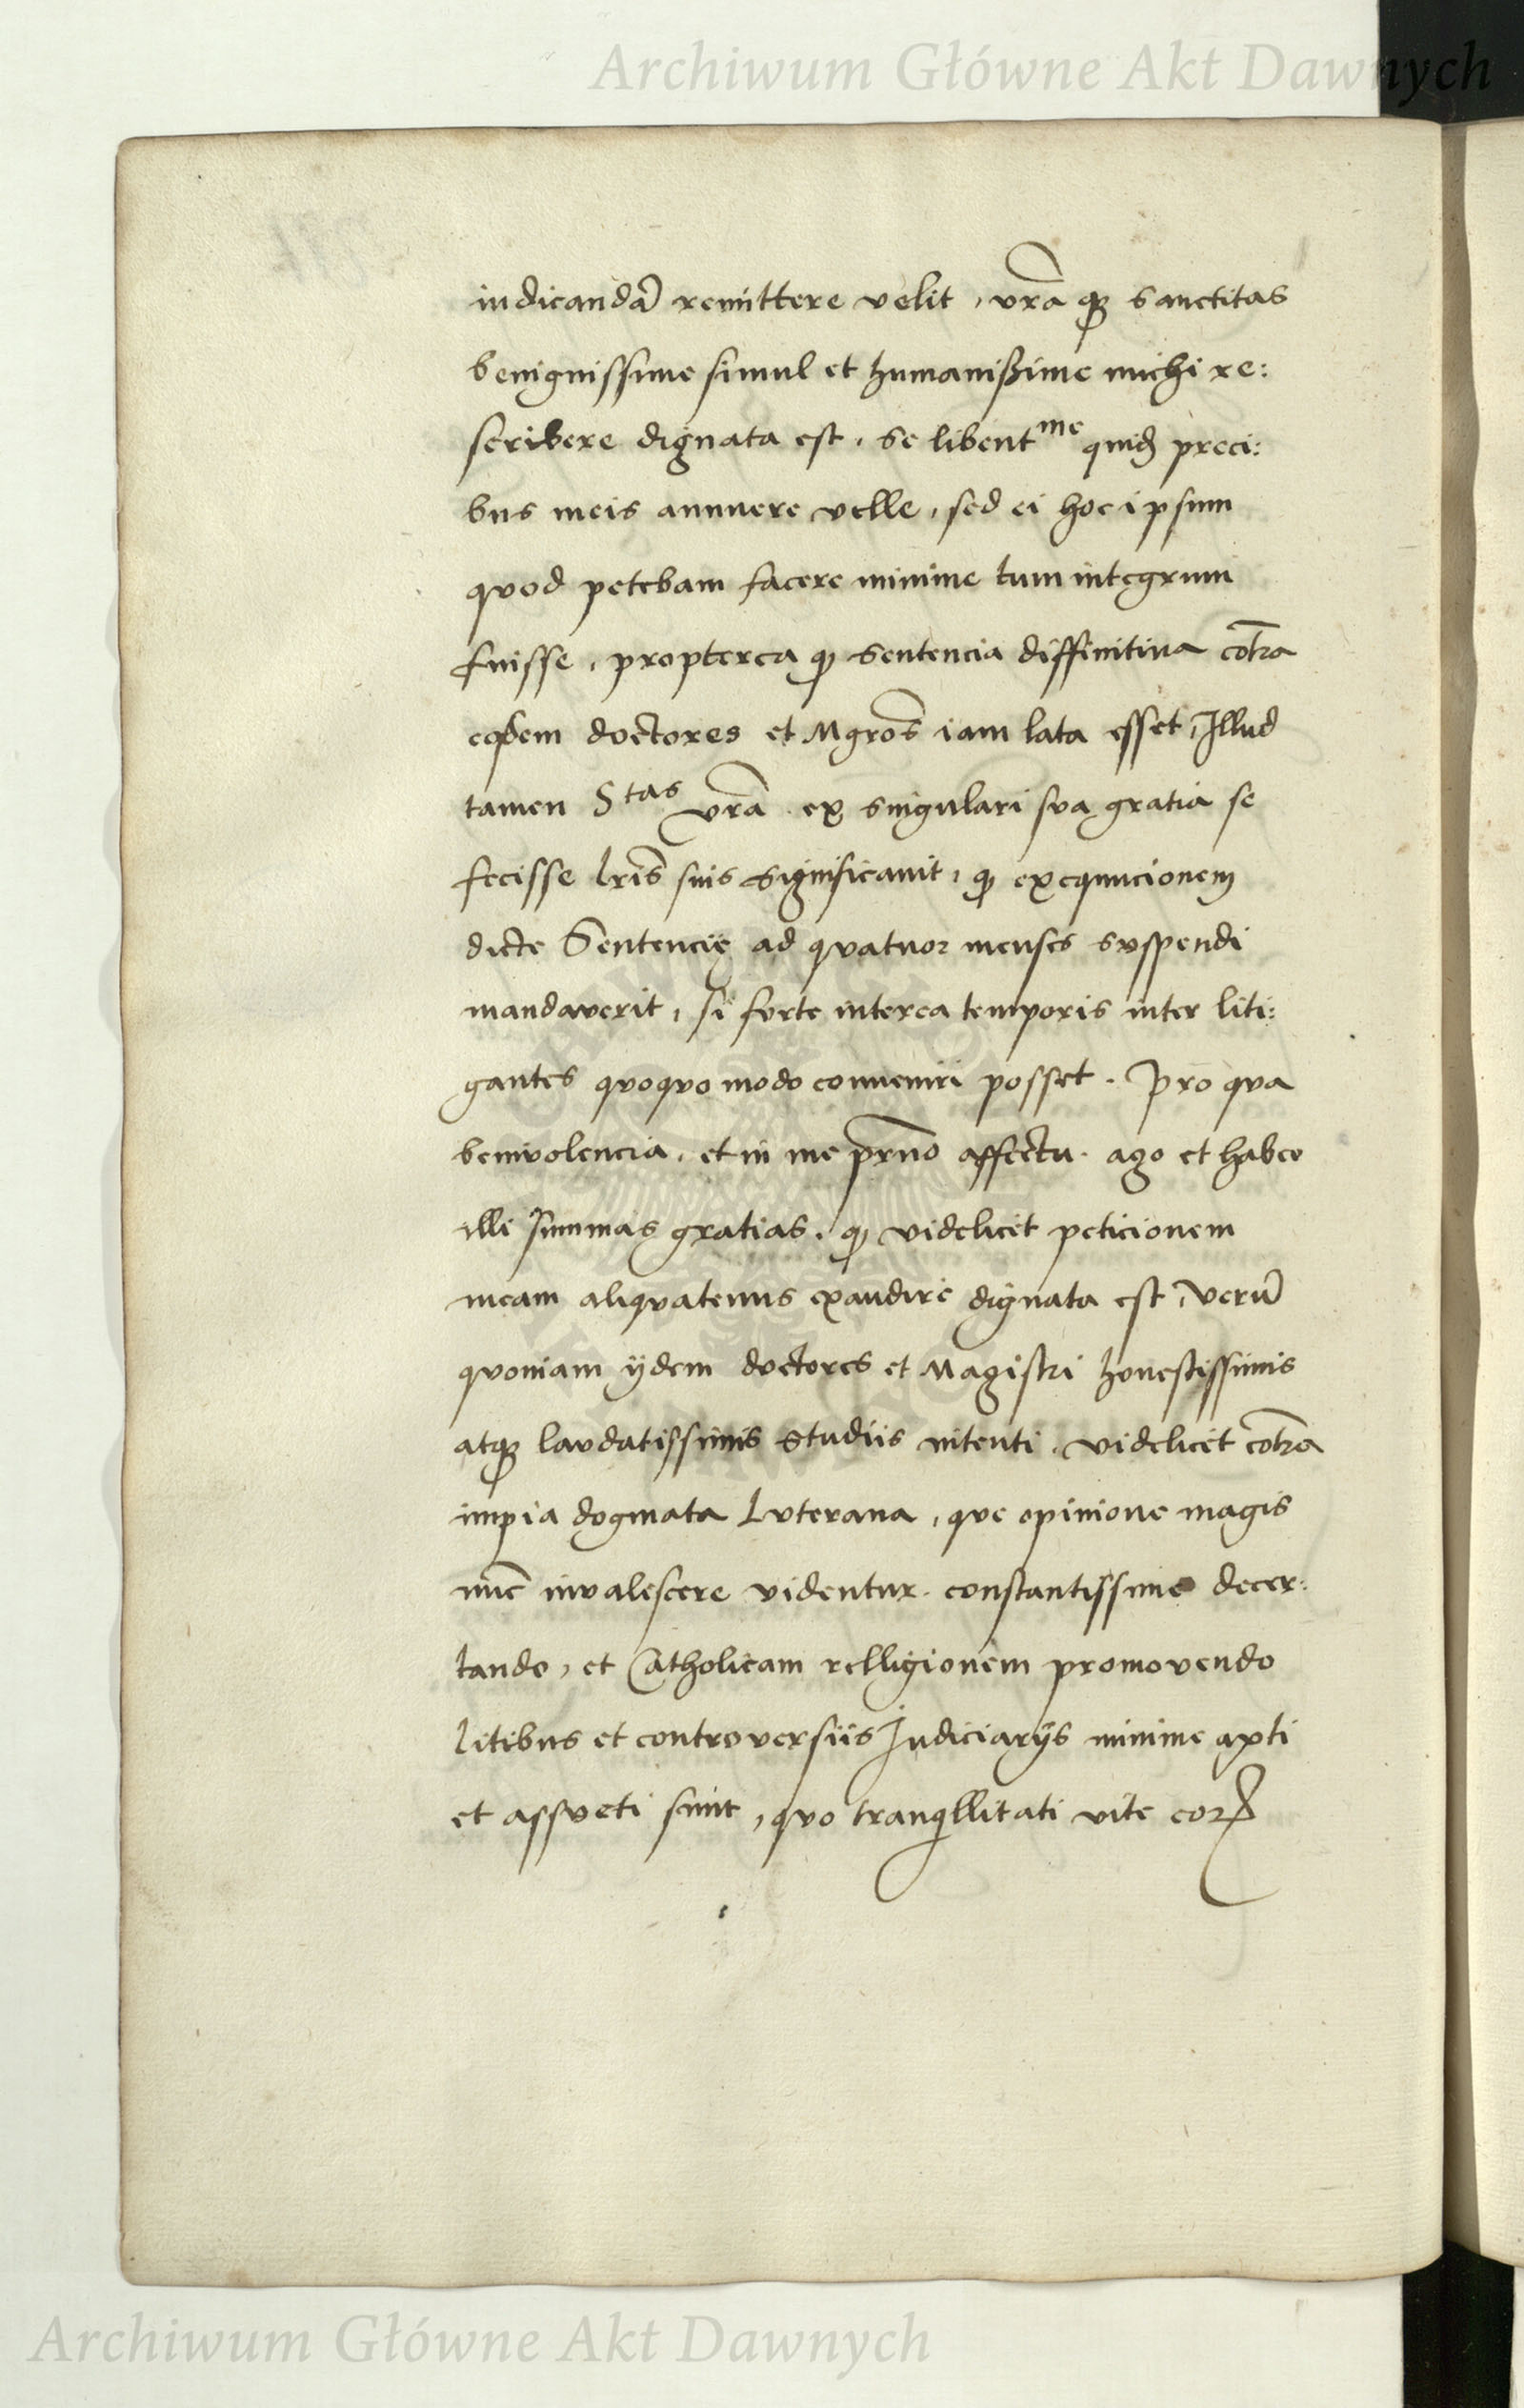 Archiwum Główne Akt Dawnych
iudicandã remittere velit, vrã qꝫ sanctitas
benignissime simul et humanißime michi re:
scribere dignata est, se libentᵐᵉ quidẽ preci:
bus meis annuere velle, sed ei hoc ipsum
quod petebam facere minime tum integrum
fuisse, propterea ꝙ sentencia diffinitiua cõtra
eosdem doctores et Mgros̃ iam lata esset, Illud
tamen Sᵗᵃˢ vrã ex singulari sva gratia se
fecisse lris̃ suis significauit, ꝙ exequucionem
dicte Sentencię ad quatuor menses suspendi
mandaverit, si forte interea temporis inter liti:
gantes quoquo modo conueniri posset. Pro qua
benivolencia, et in me prño affectu. ago et habeo
illi summas gratias, ꝙ videlicet peticionem
meam aliquatenus exaudire dignata est, Verũ
quoniam ijdem doctores et Magistri honestissimis
atqꝫ laudatissimis studiis intenti, videlicet cõtra
impia dogmata Luterana, que opinione magis
nũc invalescere videntur. constantissime decer:
tando, et Catholicam relligionem promovendo
litibus et controversiis Iudiciarijs minime apti
et assueti sunt, quo tranqillitati vite eoꝝ
Archiwum Główne Akt Dawnych